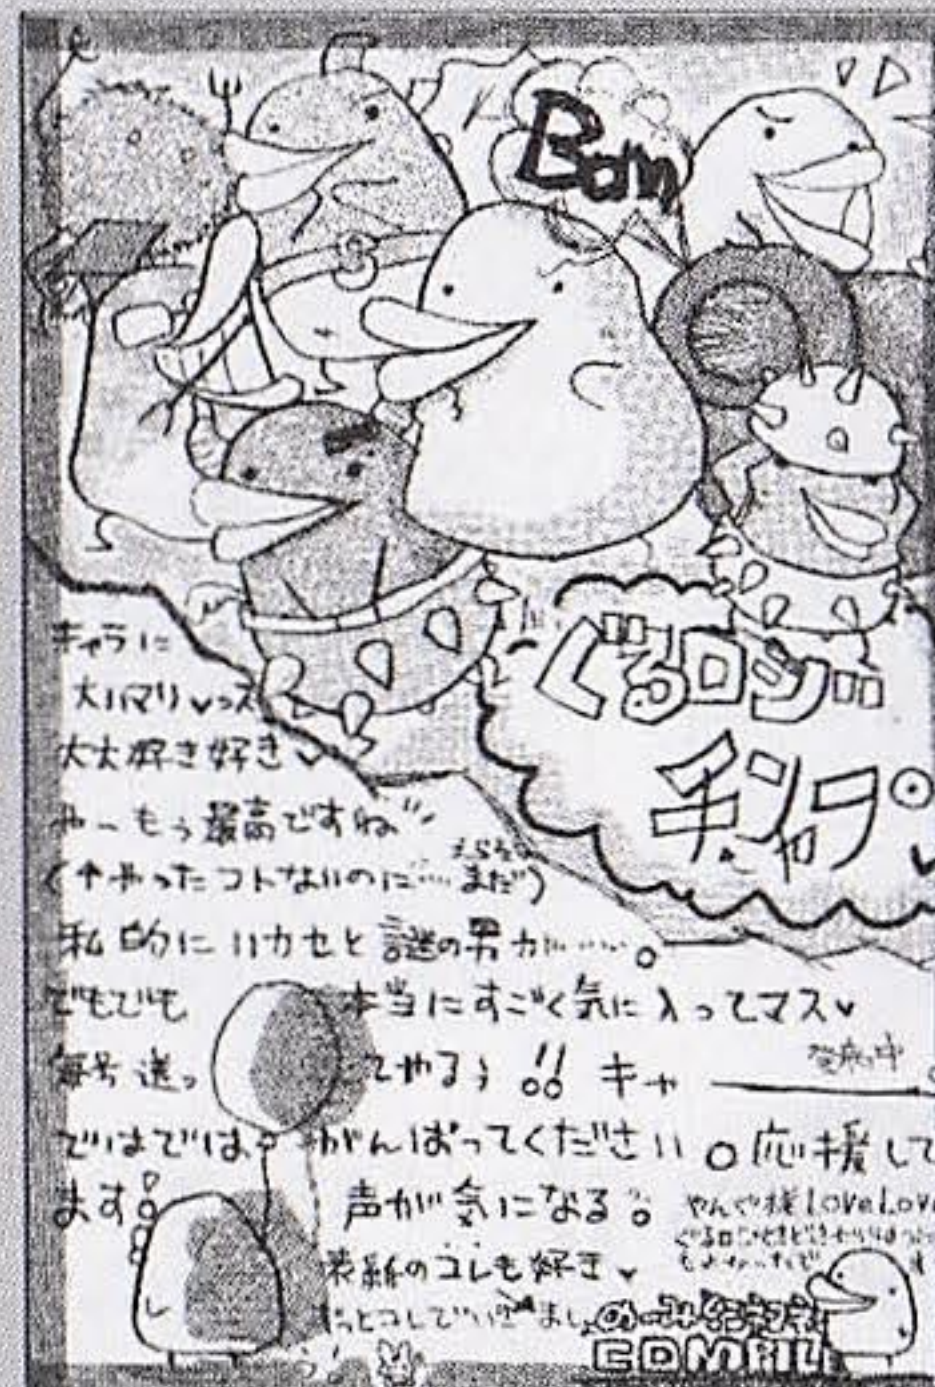 Bom
ぐるロジー
チャンプ
キャラに
大ハマリ♥っス
大大好き好き♥
やーもう最高ですね
(↑やったコトないのに…まだ)
私的にハカセと謎の男が……。
でもでも 本当にすごく気に入ってマス♥
毎号送っ てやるぅ!! キャ
発病中
ではでは。がんばってください。応援して
ます。 声が気になる。
やんぐ様LoveLove
表紙のコレも好き♥
ずっとコレでいきましょ
COMPILE